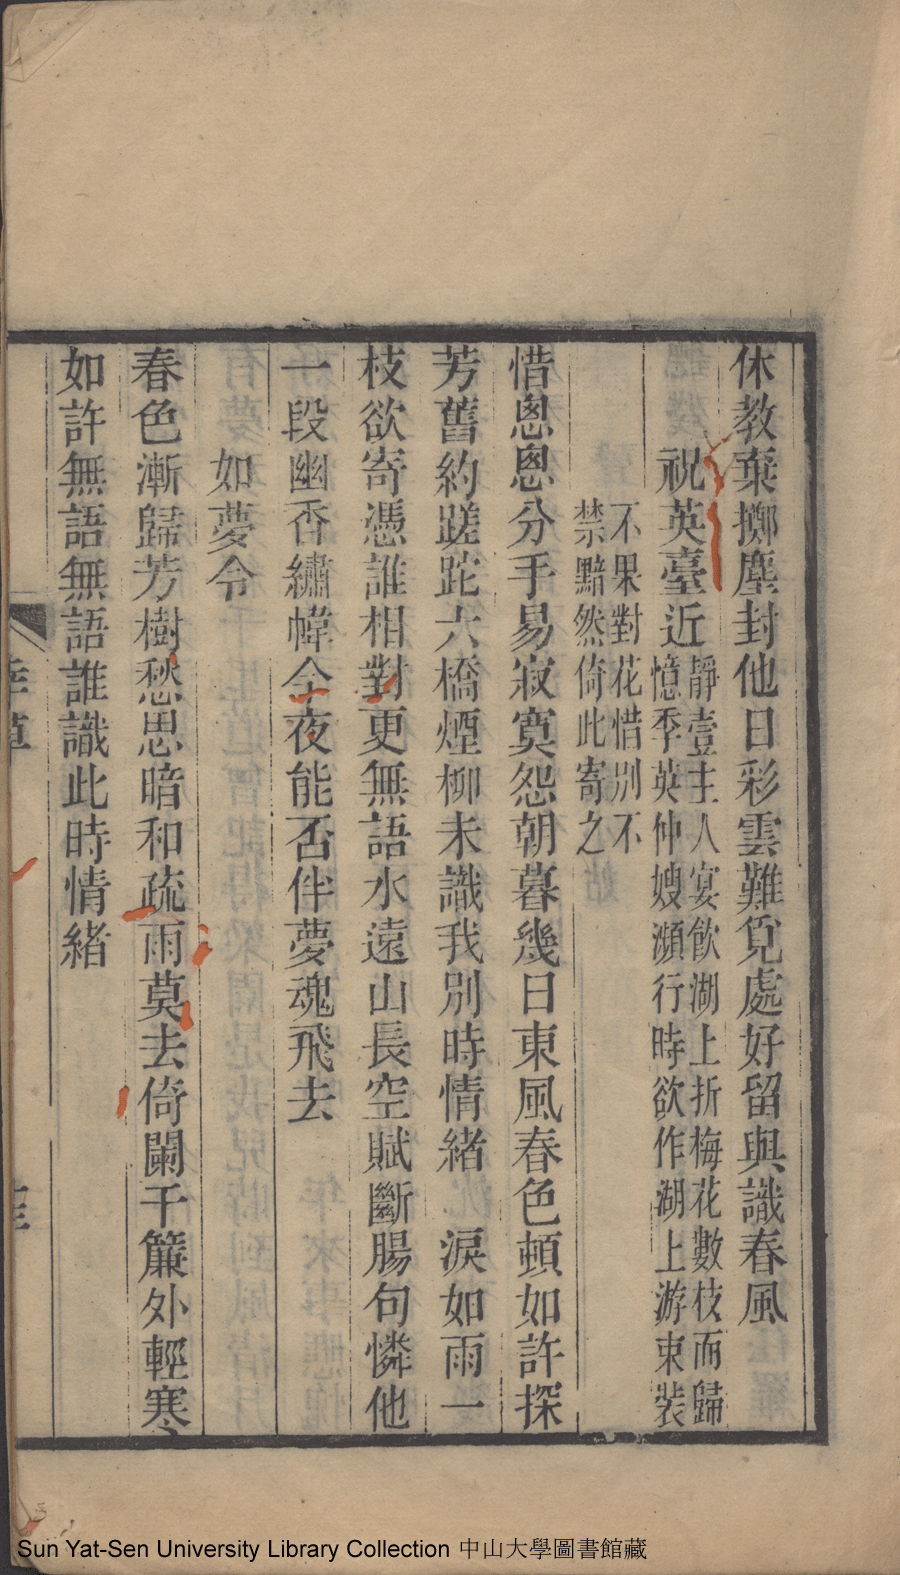 休教棄擲塵封他日彩雲難覓處好留與識春風
祝英臺近
靜壹主人宴飲湖上折梅花數枝而歸
憶季英仲嫂瀕行時欲作湖上游束裝
不果對花惜別不
禁黯然倚此寄之
惜悤悤分手易寂寞怨朝暮幾日東風春色頓如許探
芳舊約蹉跎六橋煙柳未識我別時情緒 淚如雨一
枝欲寄憑誰相對更無語水遠山長空賦斷腸句憐他
一段幽香繡幃今夜能否伴夢魂飛去
如夢令
春色漸歸芳樹愁思暗和疏雨莫去倚闌干簾外輕寒
如許無語無語誰識此時情緒
Sun Yat-Sen University Library Collection 中山大學圖書館藏